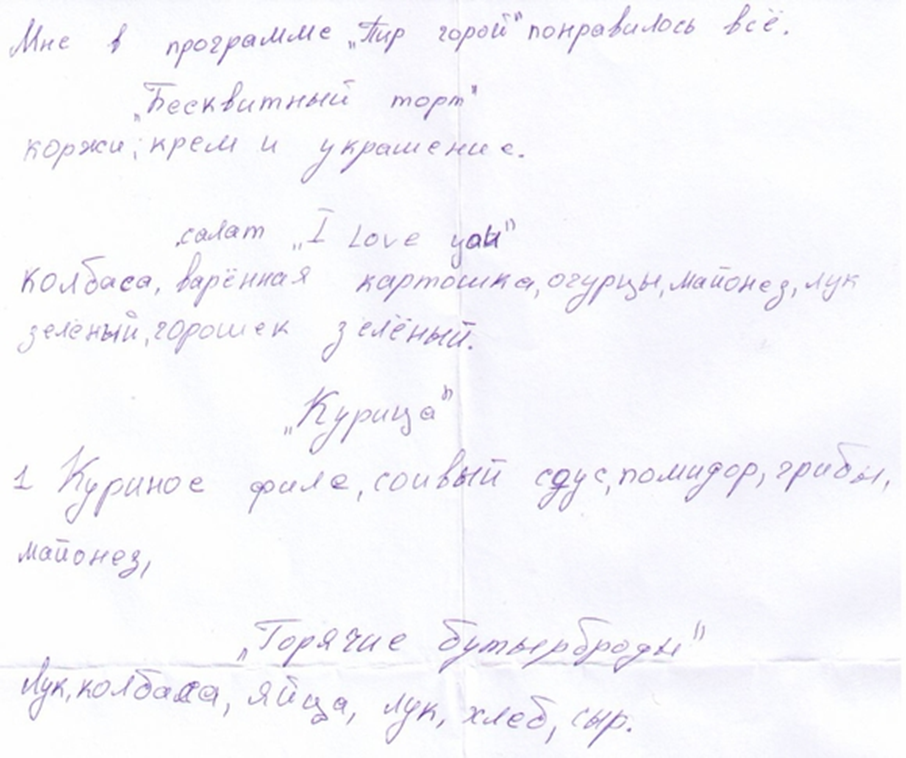 Мне в программе „Пир горой" понравилось всё.
„Бесквитный торт"
коржи, крем и украшение.
салат „I Love you"
колбаса, варённая картошка, огурцы, майонез, лук
зелёный, горошек зелёный.
„Курица"
1 Куриное филе, соивый сдус, помидор, грибы,
майонез,
„Горячие бутырброды"
Лук, колбаса, яйца, лук, хлеб, сыр.